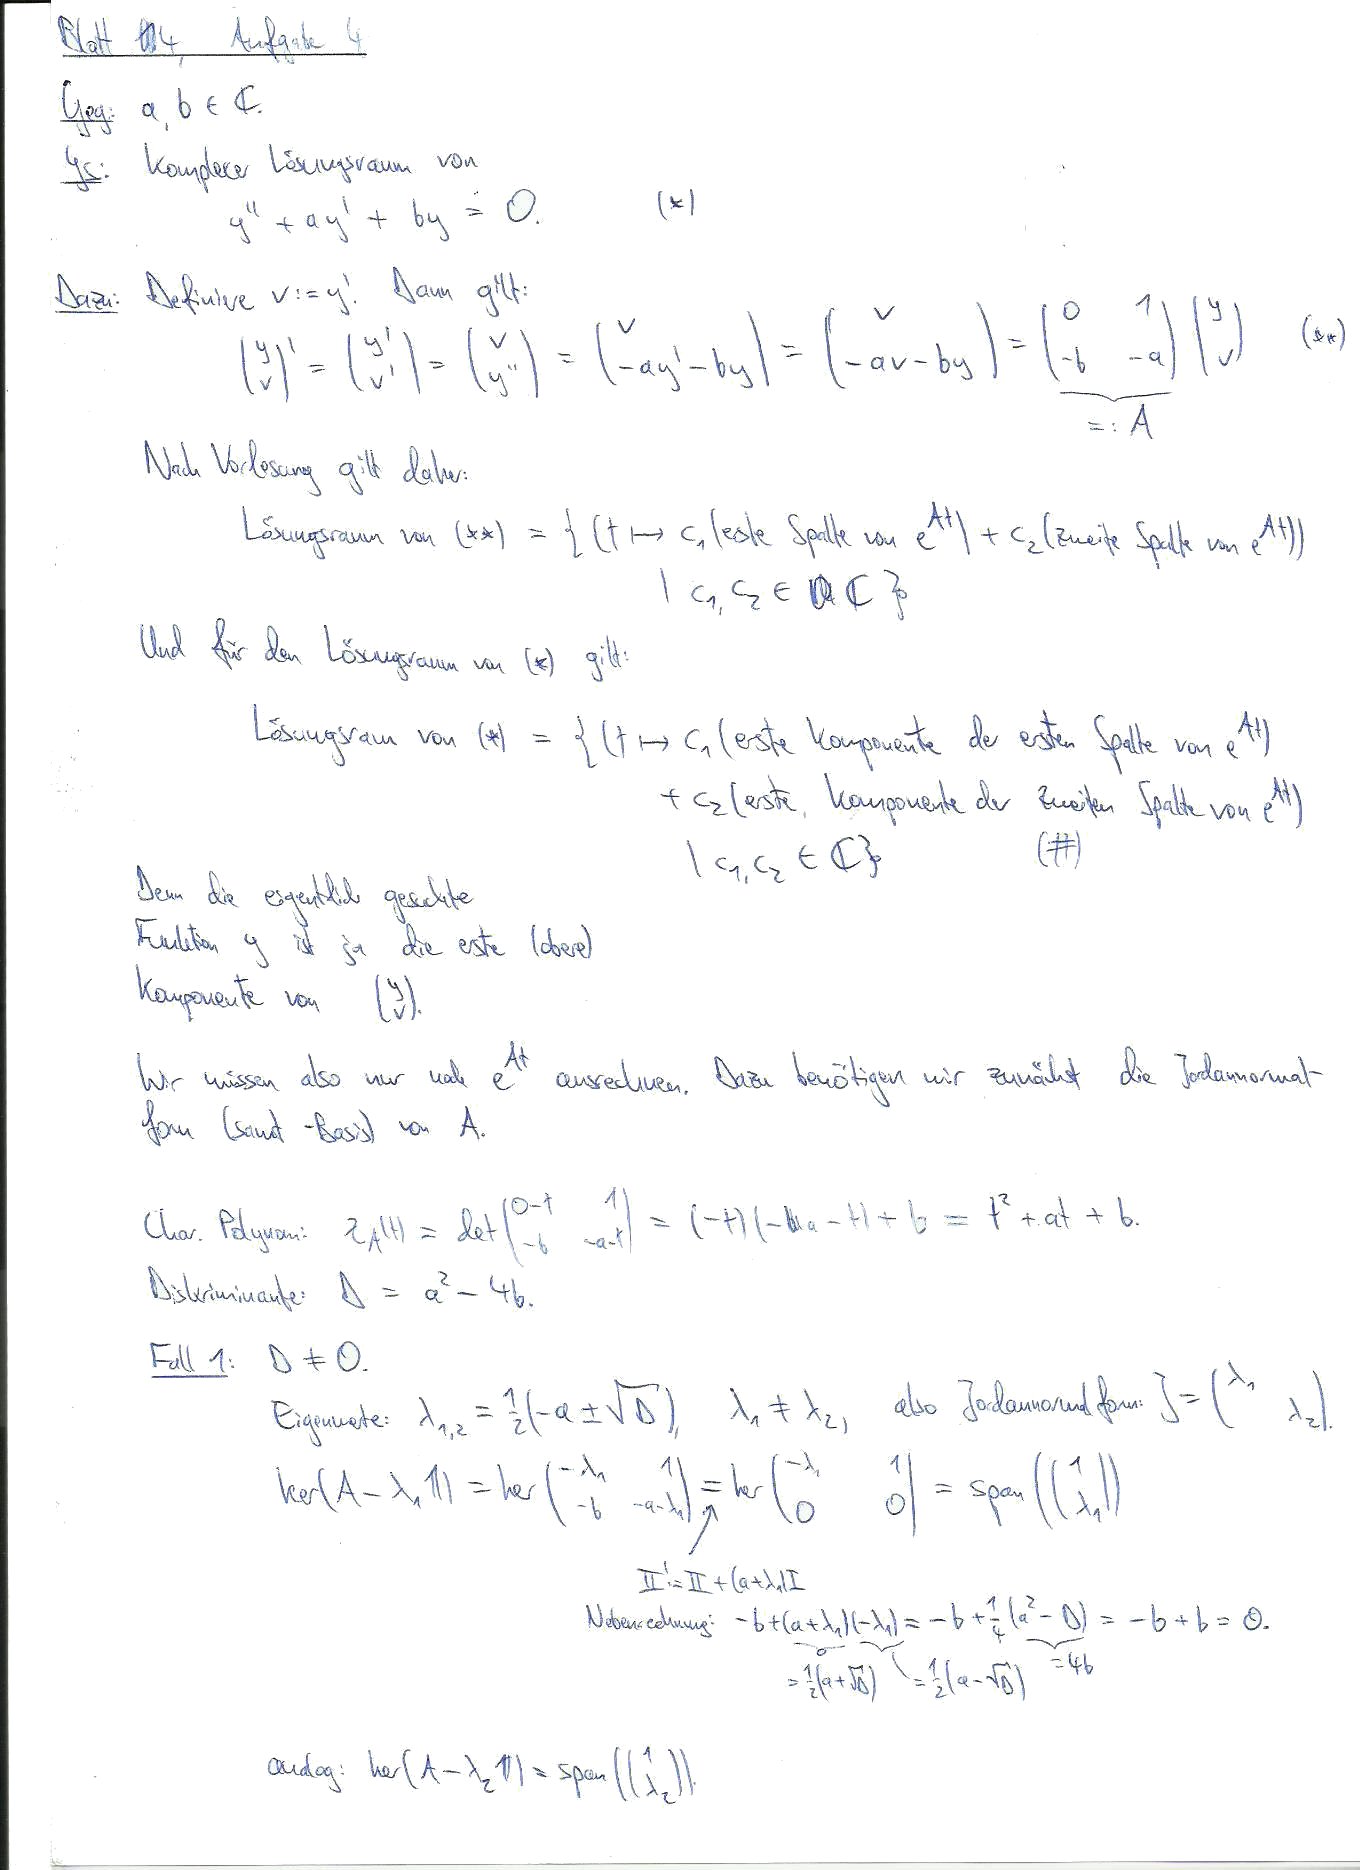 Blatt 4, Aufgabe 4
Geg: a, b ∈ ℂ.
Gs: Komplexer Lösungsraum von
y'' + ay' + by = 0. (*)
Dazu: Definiere v := y'. Dann gilt:
(y v)' = (y' v') = (v y'') = (v -ay'-by) = (v -av-by) = (0 1 -b -a) (y v) (**)
=: A
Nach Vorlesung gilt daher:
Lösungsraum von (**) = { (t ↦ c₁(erste Spalte von e^{At}) + c₂(zweite Spalte von e^{At}))
| c₁, c₂ ∈ ℂ }
Und für den Lösungsraum von (*) gilt:
Lösungsraum von (*) = { (t ↦ c₁(erste Komponente der ersten Spalte von e^{At})
+ c₂(erste Komponente der zweiten Spalte von e^{At})
| c₁, c₂ ∈ ℂ} (#)
Denn die eigentlich gesuchte
Funktion y ist ja die erste (obere)
Komponente von (y v).
Wir müssen also nur noch e^{At} ausrechnen. Dazu benötigen wir zunächst die Jordannormal-
form (samt -Basis) von A.
Char. Polynom: χ_A(t) = det(0-t 1 -b -a-t) = (-t)(-a-t) + b = t² + at + b.
Diskriminante: D = a² - 4b.
Fall 1: D ≠ 0.
Eigenwerte: λ₁,₂ = ½(-a ± √D), λ₁ ≠ λ₂, also Jordannormalform: J = (λ₁ λ₂).
ker(A - λ₁𝟙) = ker(-λ₁ 1 -b -a-λ₁) = ker(-λ₁ 1 0 0) = span((1 λ₁))
II' := II + (a+λ₁)I
Nebenrechnung: -b + (a+λ₁)(-λ₁) = -b + ¼(a² - D) = -b + b = 0.
= ½(a+√D) = ½(a-√D) = 4b
analog: ker(A - λ₂𝟙) = span((1 λ₂)).